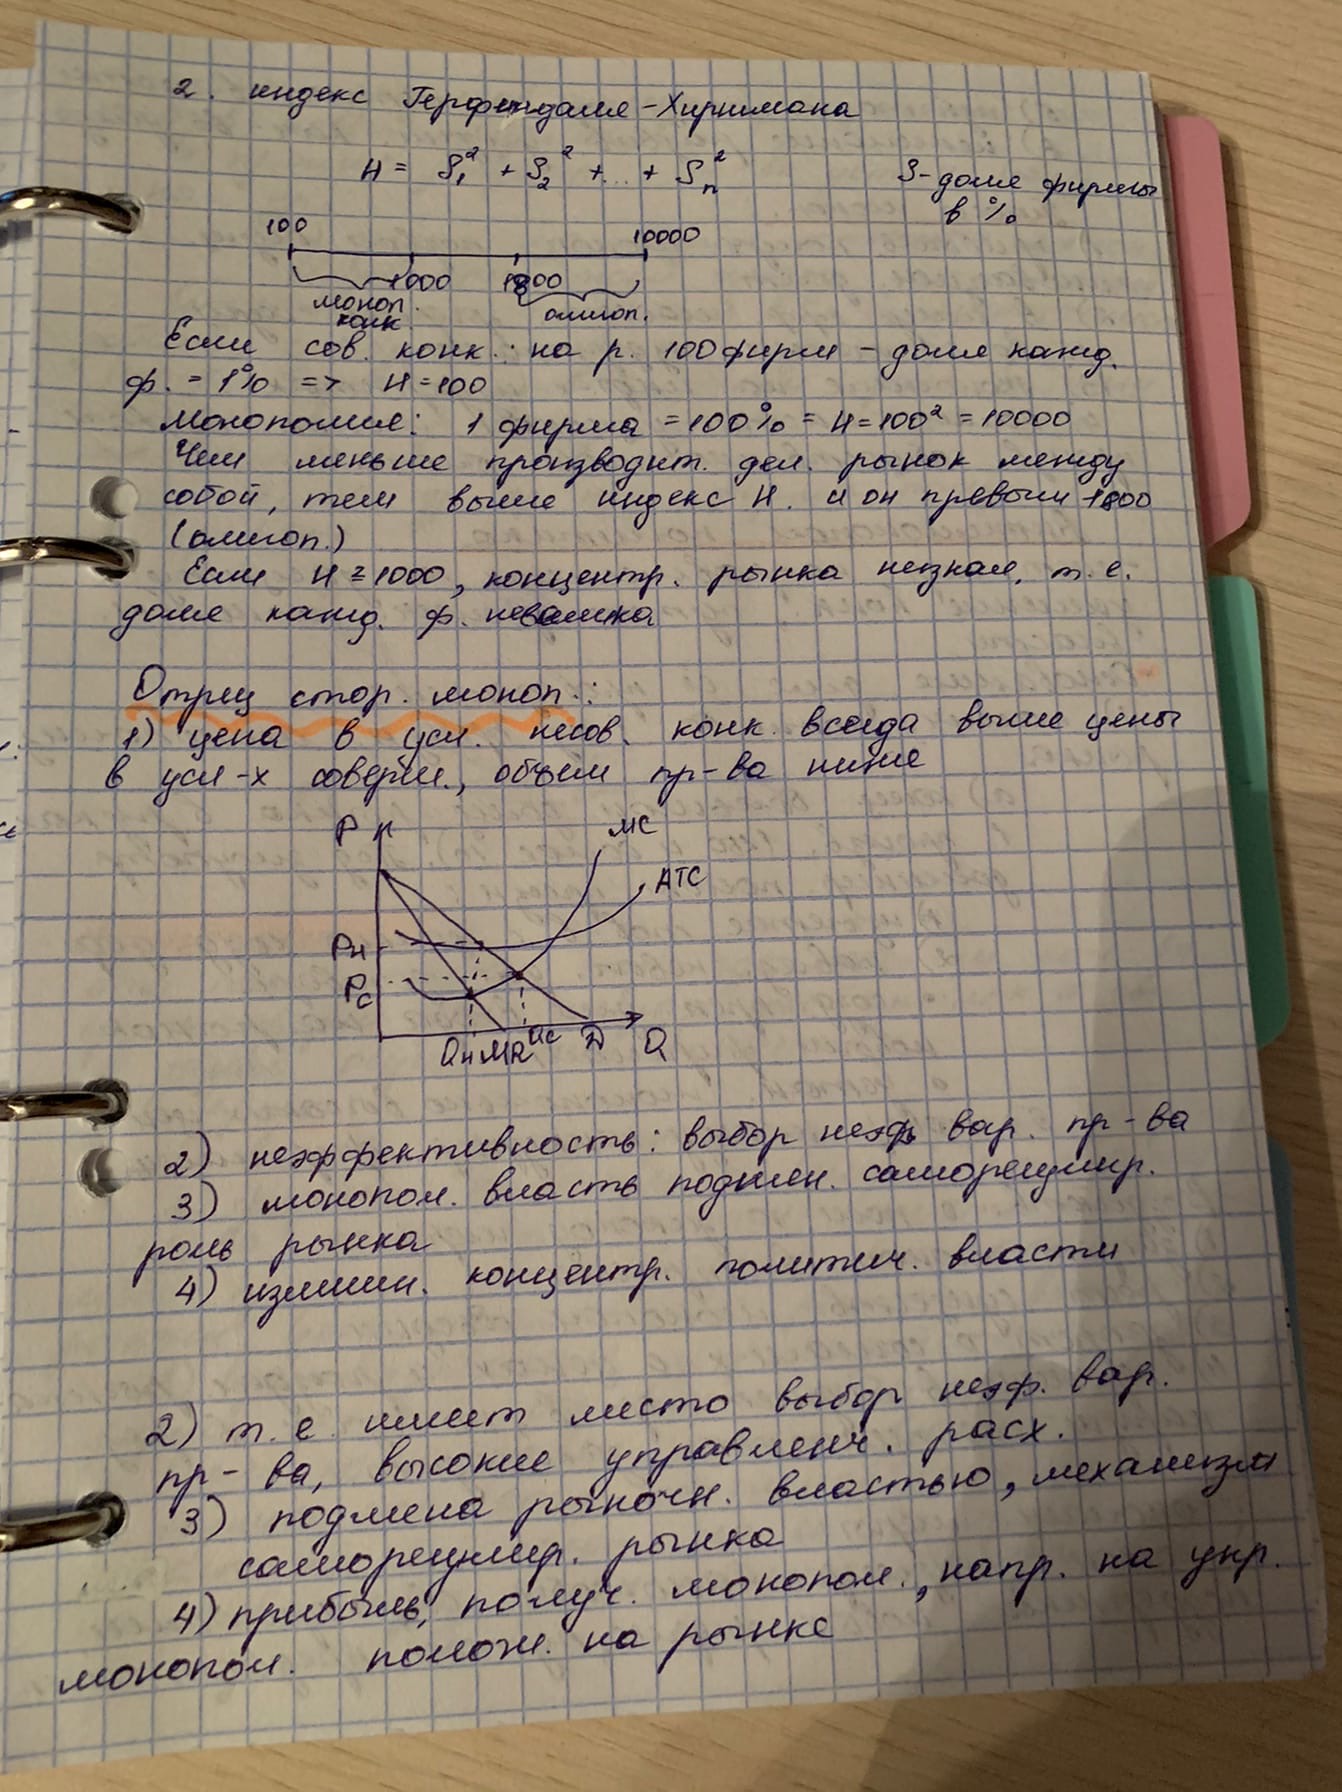 2. индекс Герфендаля-Хиршмана
H = S₁² + S₂² + ... + Sₙ² S - доля фирмы
в %
100 10000
1000 1800
моноп. олигоп.
конк.
Если сов. конк.: на р. 100 фирм - доля кажд.
ф. = 1% => H = 100
Монополия: 1 фирма = 100% = H = 100² = 10000
Чем меньше производит. дел. рынок между
собой, тем выше индекс H. и он превыш 1800
(олигоп.)
Если H ≥ 1000, концентр. рынка незнач. т. е.
доля кажд. ф. невелика
Отриц стор. моноп.:
1) цена в усл. несов. конк. всегда выше цены
в усл-х соверш., объем пр-ва ниже
P MC
ATC
Pн
Pc
Qн MR Qc D Q
2) неэффективность: выбор неэф вар. пр-ва
3) монопол. власть подмен. саморегулир.
роль рынка
4) излишн. концентр. политич. власти
2) т. е. имеет место выбор неэф. вар.
пр-ва, высокие управленч. расх.
3) подмена рыночн. властью, механизм
саморегулир. рынка
4) прибыль, получ. монопол., напр. на укр.
монопол. полож. на рынке